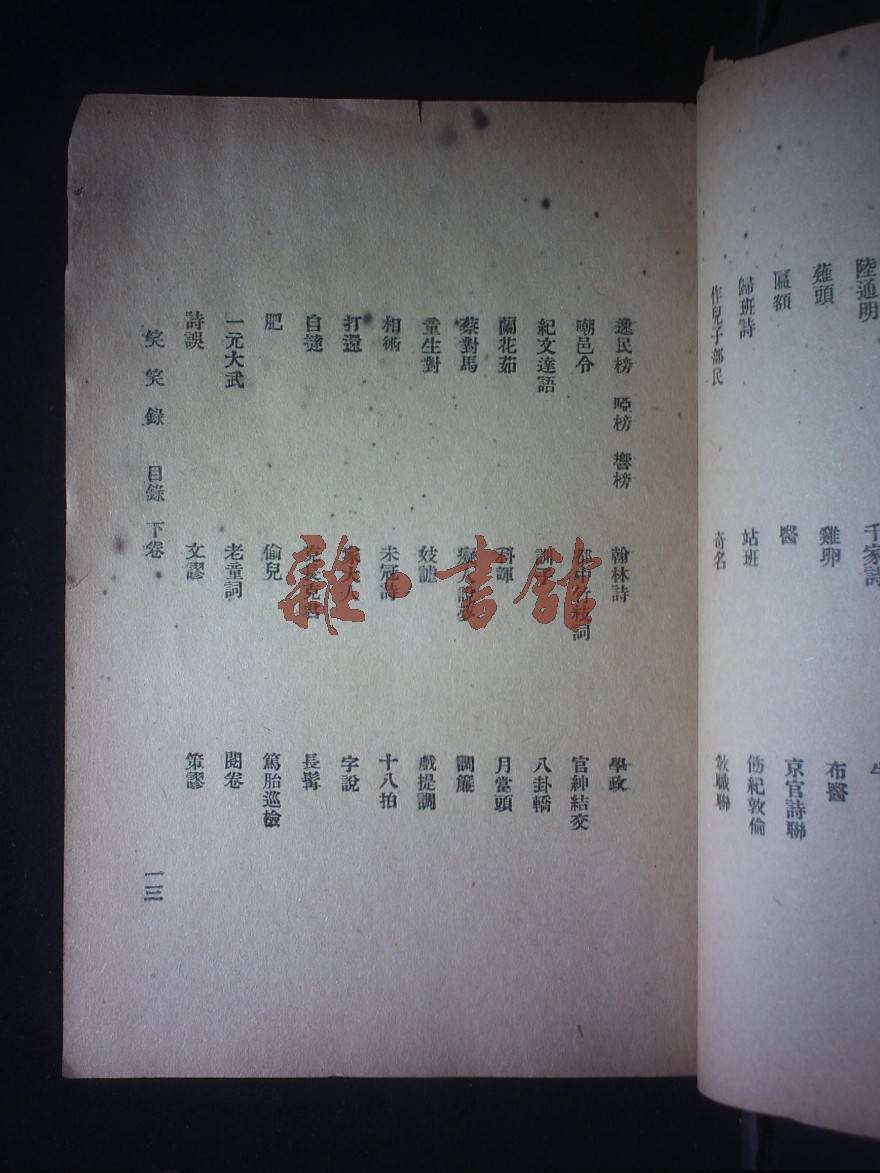 陸通明 千家詩
薤頭 雞卵 布醫
匾額 醫 京官詩聯
歸班詩 站班 飭紀敦倫
作兒子部民 奇名 教職聯
逸民榜 啞榜 響榜 翰林詩 學政
嘲邑令 都中竹枝詞 官紳結交
紀文達語 訓子 八卦轎
蘭花茹 科諢 月當頭
蔡對馬 癡人說夢 調簾
童生對 妓謔 戲提調
相術 未冠詩 十八拍
打還 家大人 字說
自撻 克長克君 長髯
肥 偷兒 篤胎巡檢
一元大武 老童詞 閱卷
詩誤 文謬 策謬
笑笑錄 目錄 下卷 一三
雜·書館